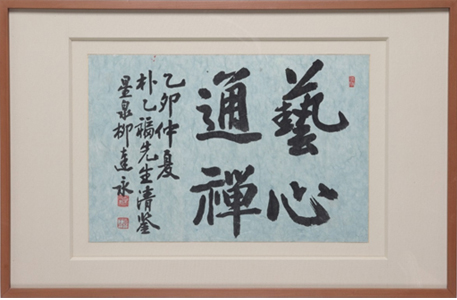 藝心
通禪
乙卯仲夏
朴乙福先生清鉴
星泉柳達永